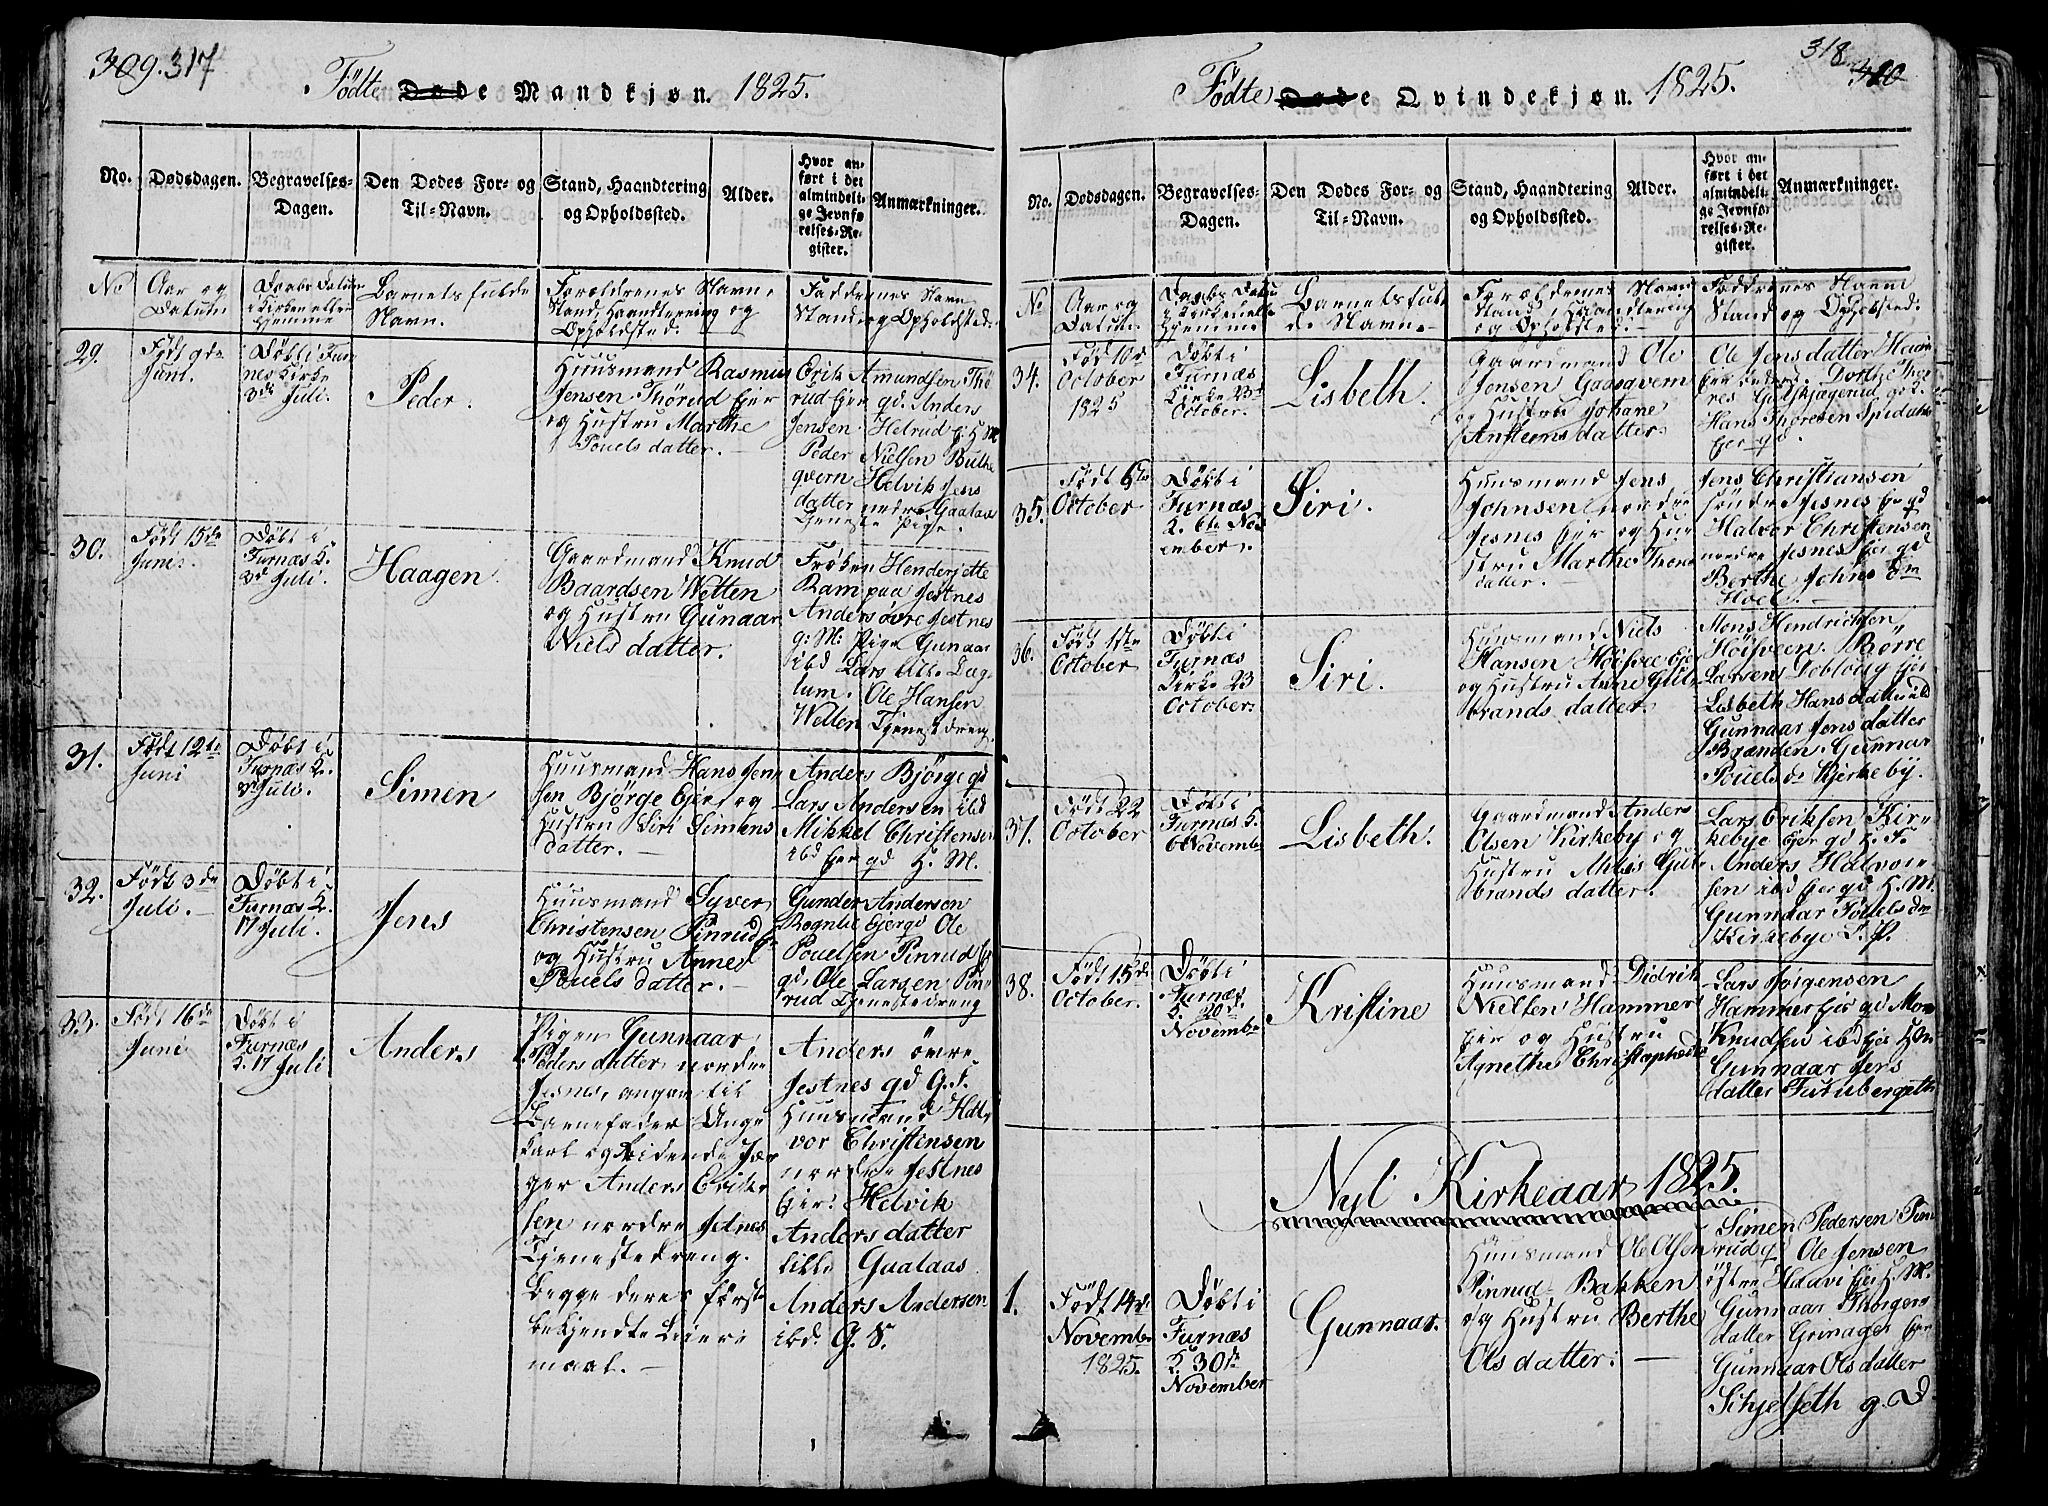 309. 317
Födte Døde Mandkjøn. 1825.
No.
Dødsdagen.
Begravelses-
Dagen.
Den Dødes For- og
Til-Navn.
Stand, Haandtering
og Opholdssted.
Alder.
Hvor an-
ført i det
almindeli-
ge Jevnfø-
relses-Re-
gister.
Anmærkninger.
No
Aar og
Datum
Daabs Datum
i Kirken eller
Hjemme
Barnets fulde
Navn.
Forældrenes Navn,
Stand, Haandtering og
Opholdsted.
Faddernes Navn
Stand og Opholdsted.
29.
Født 9de
Juni.
Døbt i Fur
nes Kirke
3de Juli.
Peder.
Huusmand Rasmus
Jensen Thörud Eier
og Hustru Marthe
Pouels datter. —
Erik Amundsen Thö
rud Eier gd. Anders
Jensen Helrud E: H M
Peder Nielsen Buthe
qvern Helvik Jens
datter nedre Gaalaas
Tjeneste Pige.
30.
Født 15de
Juni.
Døbt i
Furnæs K.
3d Juli.
Haagen
Gaardmand Knud
Baardsen Wetten
og Hustru Gunaar
Niels datter.
Frøken Henderjette
Ram paa Jestnes
Anders övre Jestnes
g: M: Pige Gunaar
ibd Lars lille Dæg
lum. Ole Hansen
Wetten Tjenestdreng.
31.
Født 12te
Juni
Døbt i
Furnæs K.
3d Juli.
Simen
Huusmand Hans Jen
sen Bjørge Eier og
Hustru Siri Simens
datter. —
Anders Bjørge gd
Lars Andersen ibd
Mikkel Christensen
ibd Eier gd H. M.
32.
Født 3de
Juli. —
Døbt i
Furnæs K.
17 Juli.
Jens
Huusmand Syver
Christensen Pinrud
og Hustru Anne
Pouels datter. —
Gunder Andersen
Rognlie Eier gd Ole
Pouelsen Pinrud
gd. Ole Larsen Pin
rud Tjenestedreng
33.
Født 16de
Juni
Døbt i
Furnæs
K. 17 Juli
Anders
Pigen Gunnaar
Peders datter nordre
Jesnes, angav til
Barnefader Unge
karl og Ridende Jæ
ger Anders Erik
sen nordre Jesnes
Tjenestedreng.
Begge deres første
bekjendte Leier
maal. —
Anders övre
Jestnes gd G. S.
Huusmand Hal
vor Christensen
nordre Jestnes
Eier. Helvik
Anders datter
lille Gaalaas
Anders Andersen
ibd. G. S.
318 310
Födte Døde Qvindekjøn. 1825.
No.
Dødsdagen.
Begravelses-
Dagen.
Den Dødes For- og
Til-Navn.
Stand, Haandtering
og Opholdssted.
Alder.
Hvor an-
ført i det
almindeli-
ge Jevnfø-
relses-Re-
gister.
Anmærkninger.
No
Aar og
Datum.
Daabs Datum
i Kirken eller
Hjemme
Barnets ful
de Navn.
Forældrenes Navn
Stand, Haandtering
og Opholdsted. —
Faddrenes Navn
Stand og Opholdsted.
34.
Født 10d
October
1825
Døbt i
Furnæs
Kirke 23d
October.
Lisbeth.
Gaardmand Ole
Jensen Gaasqvern
og Hustru Johane
Ansteens datter.
Ole Jens datter
Dorthe
Hans Thoresen Spidahl
Eier gd.
35.
Født 6te
October
Døbt i
Furnæs
K. 6te Nov
ember.
Siri.
Huusmand Jens
Johnsen nordre
Jesnes Eier og Hu
stru Marthe Thore
datter.
Jens Christiansen
söndre Jesnes Eier gd
Halvor Christensen
nordre Jesnes Eier gd
Berthe Johns dtr
Hoel. —
36.
Født 1ste
October
Døbt i
Furnæs
Kirke 23
October.
Siri.
Huusmand Niels
Hansen Höisvee Eier
og Hustru Anne Gul
brands datter.
Mons Hendrichsen
Höisveen. Börre
Larsen Dobloug Eier
Lisbeth Hans datter ibd
Gunnaar Jens datter
Brænden. Gunnar
Pouels dr Kjerkeby.
37.
Født 22
October
Døbt i
Furnæs K.
6 Novembr
Lisbeth.
Gaardmand Anders
Olsen Kirkeby og
Hustru Ahlis Gul
brands datter.
Lars Eriksen Kir
kebye Eier gd H. F.
Anders Halvor
sen ibd Eier gd H. M.
Gunnaar Pouels dtr
Kirkebye T. P.
38.
Født 15de
October.
Døbt i
Furnæs
K. 20d
Novembr
Kristine
Huusmand Didrik
Nielsen Hammer
Eier og Hustru
Agnethe Christophsdtr
Lars Jörgensen
Hammer Eier gd Mon
Knudsen ibd Eier H M
Gunnaar Jens
datter Furuberget
Nyt Kirkeaar 1825.
1.
Født 14de
Novembr
1825.
Døbt i
Furnæs
K. 30de
November
Gunnaar.
Huusmand Ole Olsen
Pinrud Bakken
og Hustru Berthe
Ols datter. —
Simen Pedersen Pin
rud gd Ole Jensen
östre Haavi Eier H. M.
Gunnaar Thorgers
datter Grinager Eier
Gunnaar Ols datter
Schjelseth g. D.